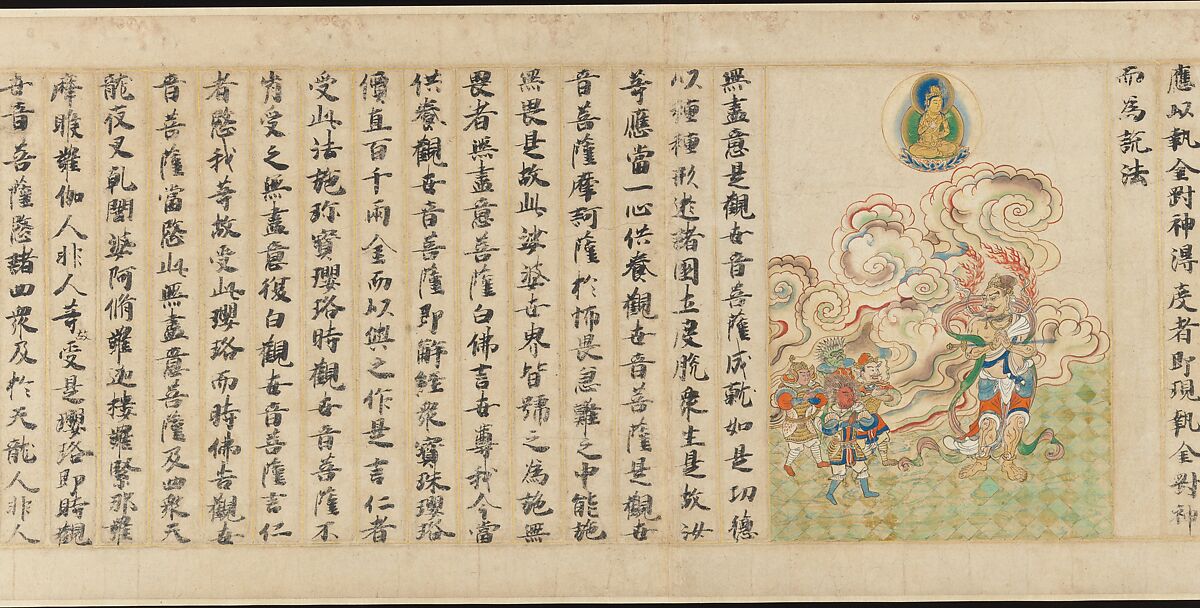 應以執金剛神得度者即現執金剛神
而為說法
無盡意是觀世音菩薩成就如是功德
以種種形遊諸國土度脫眾生是故汝
等應當一心供養觀世音菩薩是觀世
音菩薩摩訶薩於怖畏急難之中能施
無畏是故此娑婆世界皆號之為施無
畏者無盡意菩薩白佛言世尊我今當
供養觀世音菩薩即解經眾寶珠瓔珞
價直百千兩金而以與之作是言仁者
受此法施珎寶瓔珞時觀世音菩薩不
肯受之無盡意復白觀世音菩薩言仁
者愍我等故受此瓔珞而時佛告觀世
音菩薩當愍此無盡意菩薩及四眾天
龍夜叉乾闥婆阿脩羅迦樓羅緊那羅
摩睺羅伽人非人等故受是瓔珞即時觀
世音菩薩愍諸四眾及於天龍人非人